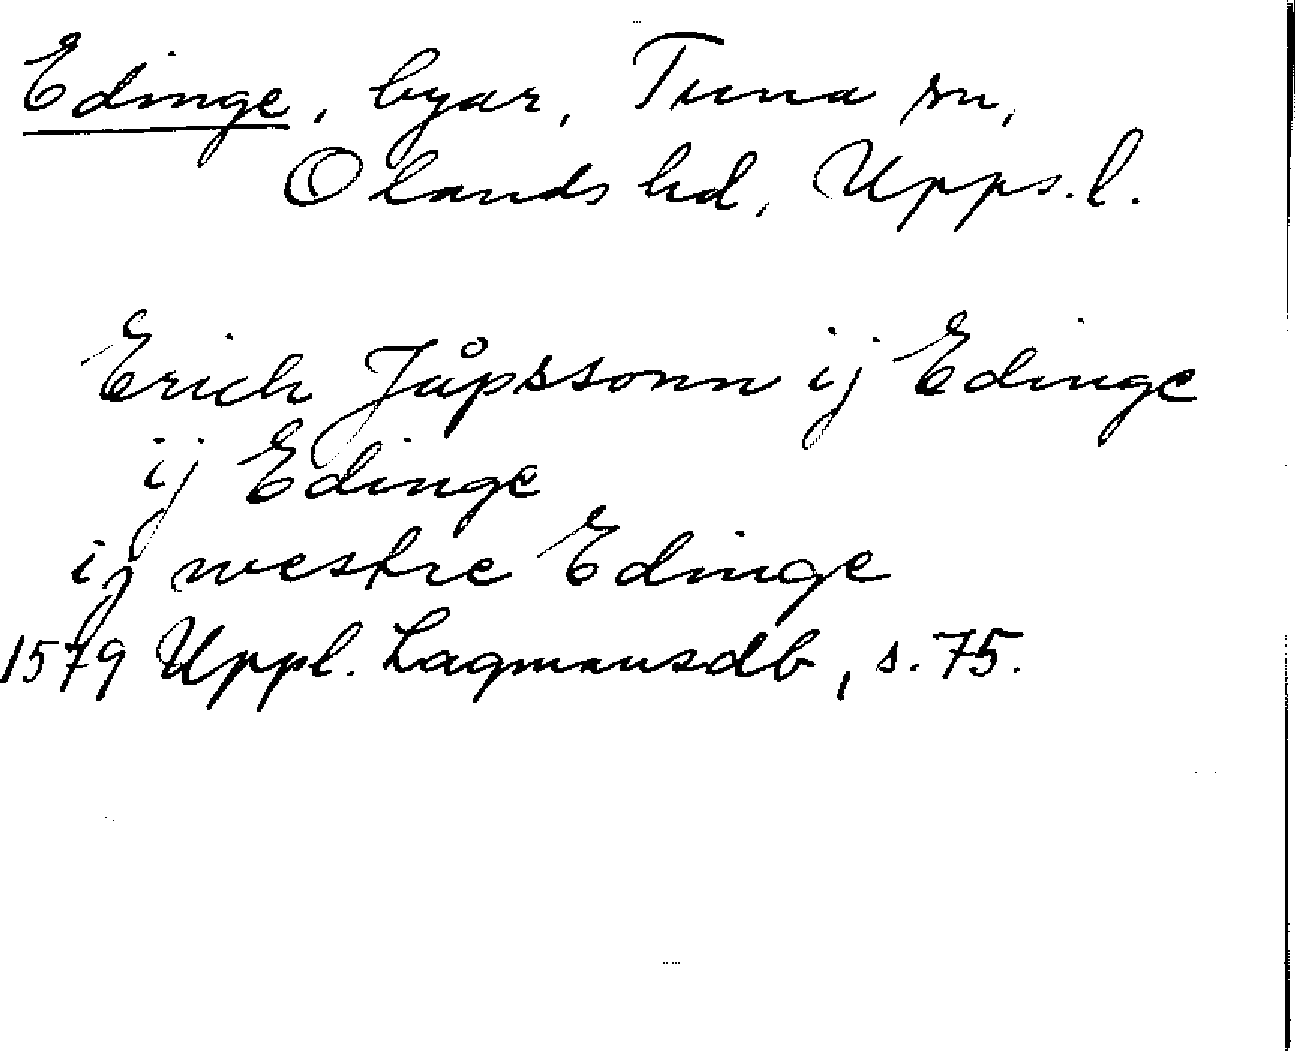 Edinge, byar, Tuna sn,
Olands hd, Upps. l.
Erich Jåpssonn ij Edinge
ij Edinge
ij westre Edinge
1579 Uppl. Lagmansdb, s. 75.